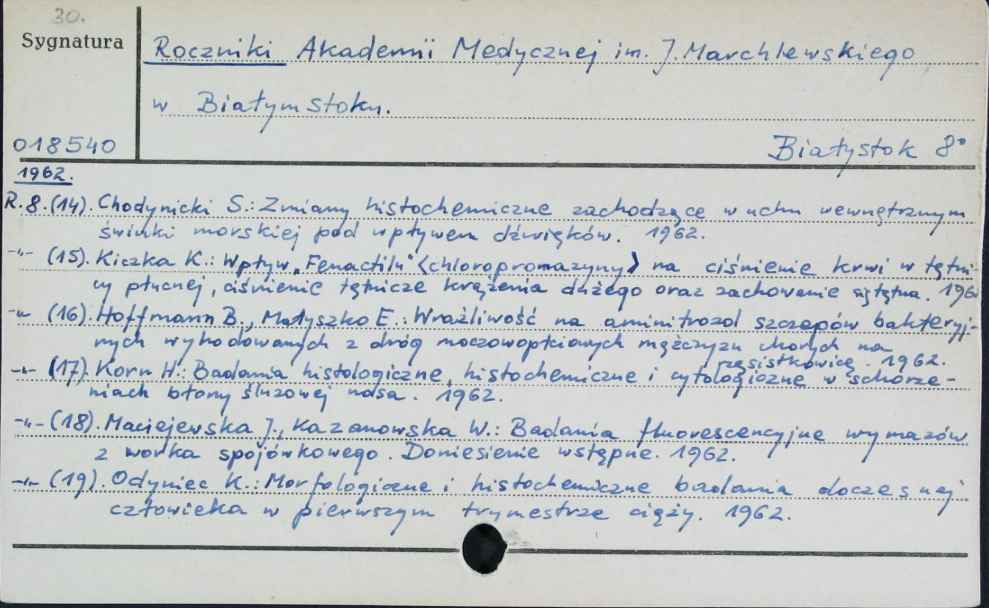 30.
Sygnatura
Roczniki Akademii Medycznej im. J. Marchlewskiego
w Białymstoku.
018540
Białystok 8°
1962.
R.8.(14). Chodynicki S.: Zmiany histochemiczne zachodzące w uchu wewnętrznym
świnki morskiej pod wpływem dźwięków. 1962.
-"- (15). Kiczka K.: Wpływ "Fenactilu" <chloropromazyny> na ciśnienie krwi w tętni-
cy płucnej, ciśnienie tętnicze krążenia dużego oraz zachowanie się tętna. 1962
-"- (16). Hoffmann B., Małyszko E.: Wrażliwość na aminitrozol szczepów bakteryj-
nych wyhodowanych z dróg moczowopłciowych mężczyzn chorych na
rzęsistkowicę. 1962.
-"- (17). Korn H.: Badania histologiczne, histochemiczne i cytologiczne w schorze-
niach błony śluzowej nosa. 1962.
-"- (18). Maciejewska J., Kazanowska W.: Badania fluorescencyjne wymazów
z worka spojówkowego. Doniesienie wstępne. 1962.
-"- (19). Odyniec K.: Morfologiczne i histochemiczne badania doczesnej
człowieka w pierwszym trymestrze ciąży. 1962.